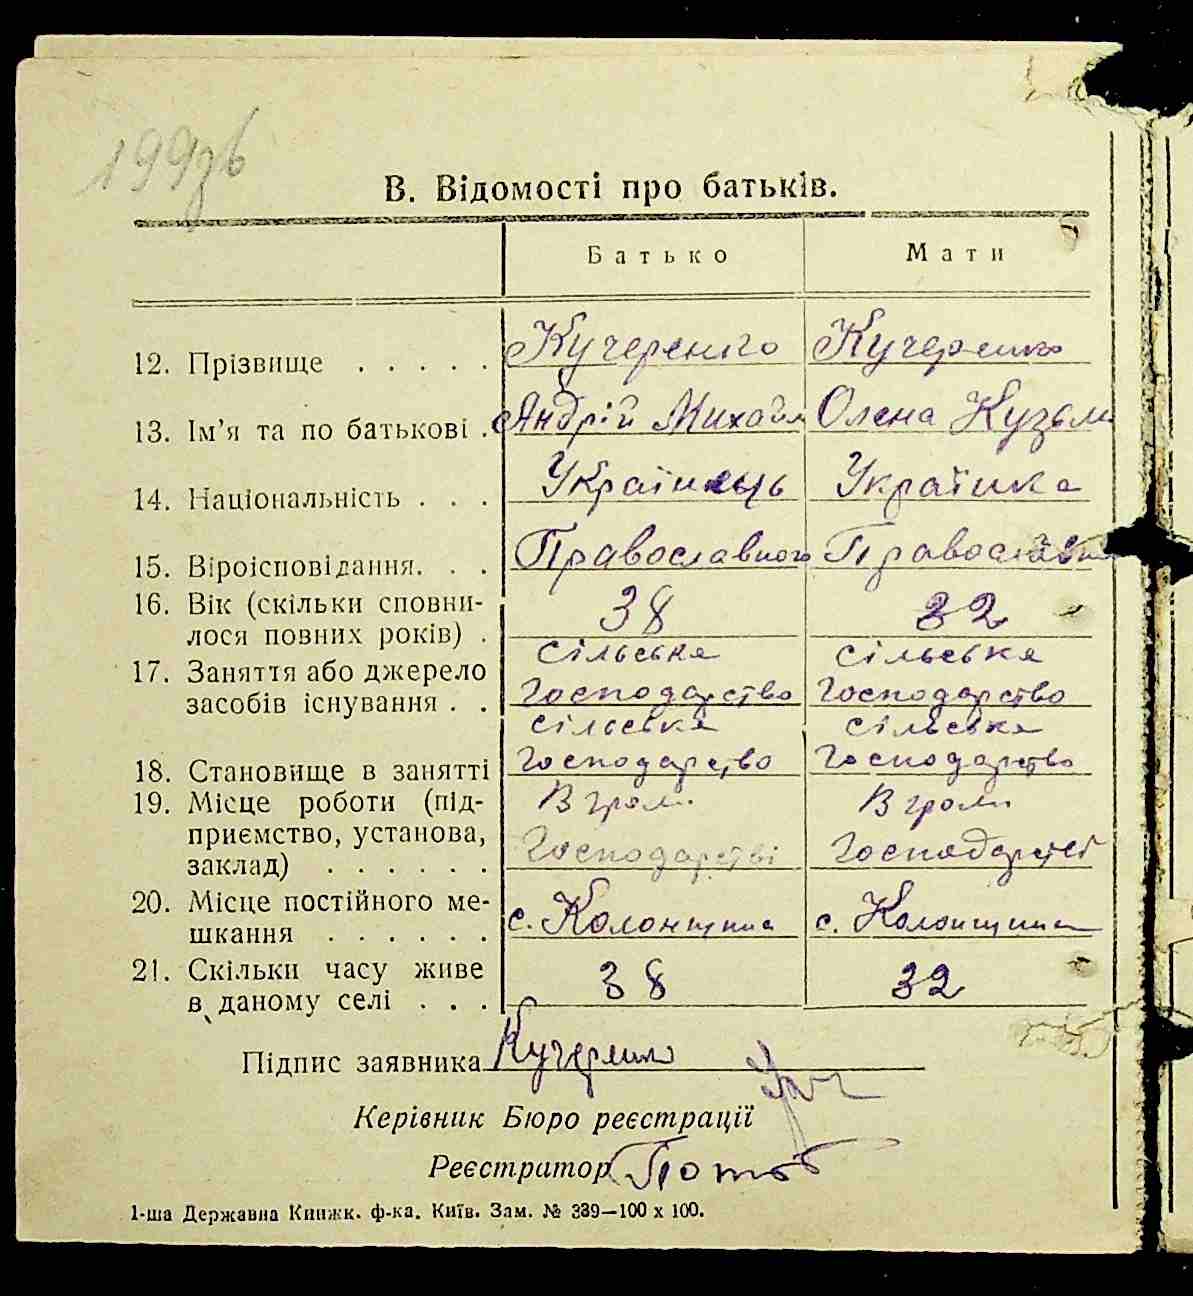 В. Відомості про батьків.
Батько Мати
12. Прізвище . . . . . Кучеренко Кучеренко
13. Ім'я та по батькові . Андрій Михайл Олена Кузьм
14. Національність . . . Українець Українка
15. Віроісповідання. . . Православного Православн
16. Вік (скільки сповни-
лося повних років) . 38 32
17. Заняття або джерело сільське сільське
засобів існування . . господарство господарство
сільське сільське
18. Становище в занятті господарство господарство
19. Місце роботи (під- В гром. В гром
приємство, установа,
заклад) . . . . . . Господарстві Господарстві
20. Місце постійного ме-
шкання . . . . . . с. Колонщина с. Колонщина
21. Скільки часу живе
в даному селі . . . 38 32
Підпис заявника
Керівник Бюро реєстрації
Реєстратор
1-ша Державна Книжк. ф-ка. Київ. Зам. № 339—100 х 100.